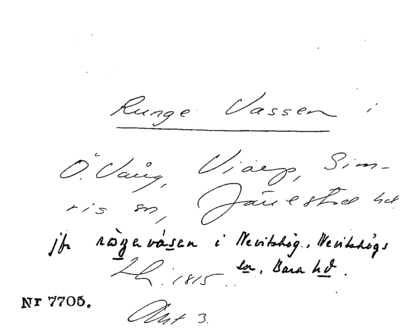 Runge Vassen i
Ö. Vång, Viarp, Sim-
ris sn, Järrestad hd.
jfr ràgavåsan i Nevitshög, Nevitshögs
sn, Bara hd.
Lh. 1815
Nr 7705.
Akt 3.